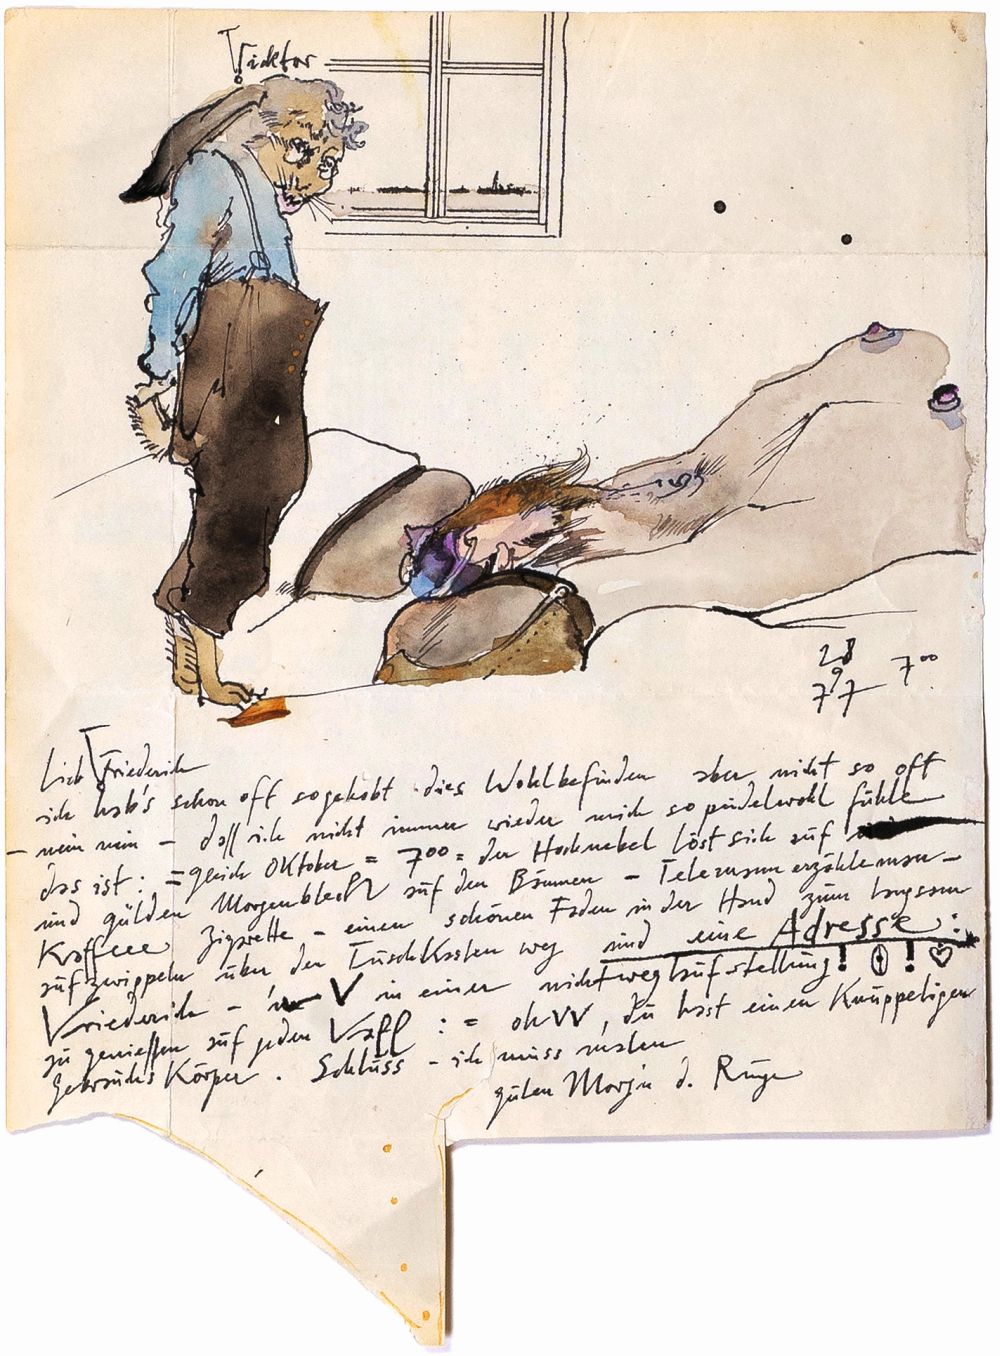 Vicktor
28
9
77 7⁰⁰
Lieb Friederich
ich hab's schon oft so gehabt dies Wohlbefinden aber nicht so oft
– nein nein – daß ich nicht immer wieder mich so pudelwohl fühle
das ist : = gleich Oktober = 7⁰⁰ = der Hochnebel löst sich auf
und gülden Morgenblech auf den Bäumen – Telemann erzählen
Kaffeee Zigarette – einen schönen Faden in der Hand zum langsam
aufzwippeln über den Tuschkasten weg und eine Adresse :
Vriederich – V in einer nichtweglaufstellung! !
zu geniessen auf jeden Vall : = oh VV, du hast einen Knuppeligen
Gebrauchs Körper . Schluss – ich muss malen
guten Morgen d. Runge